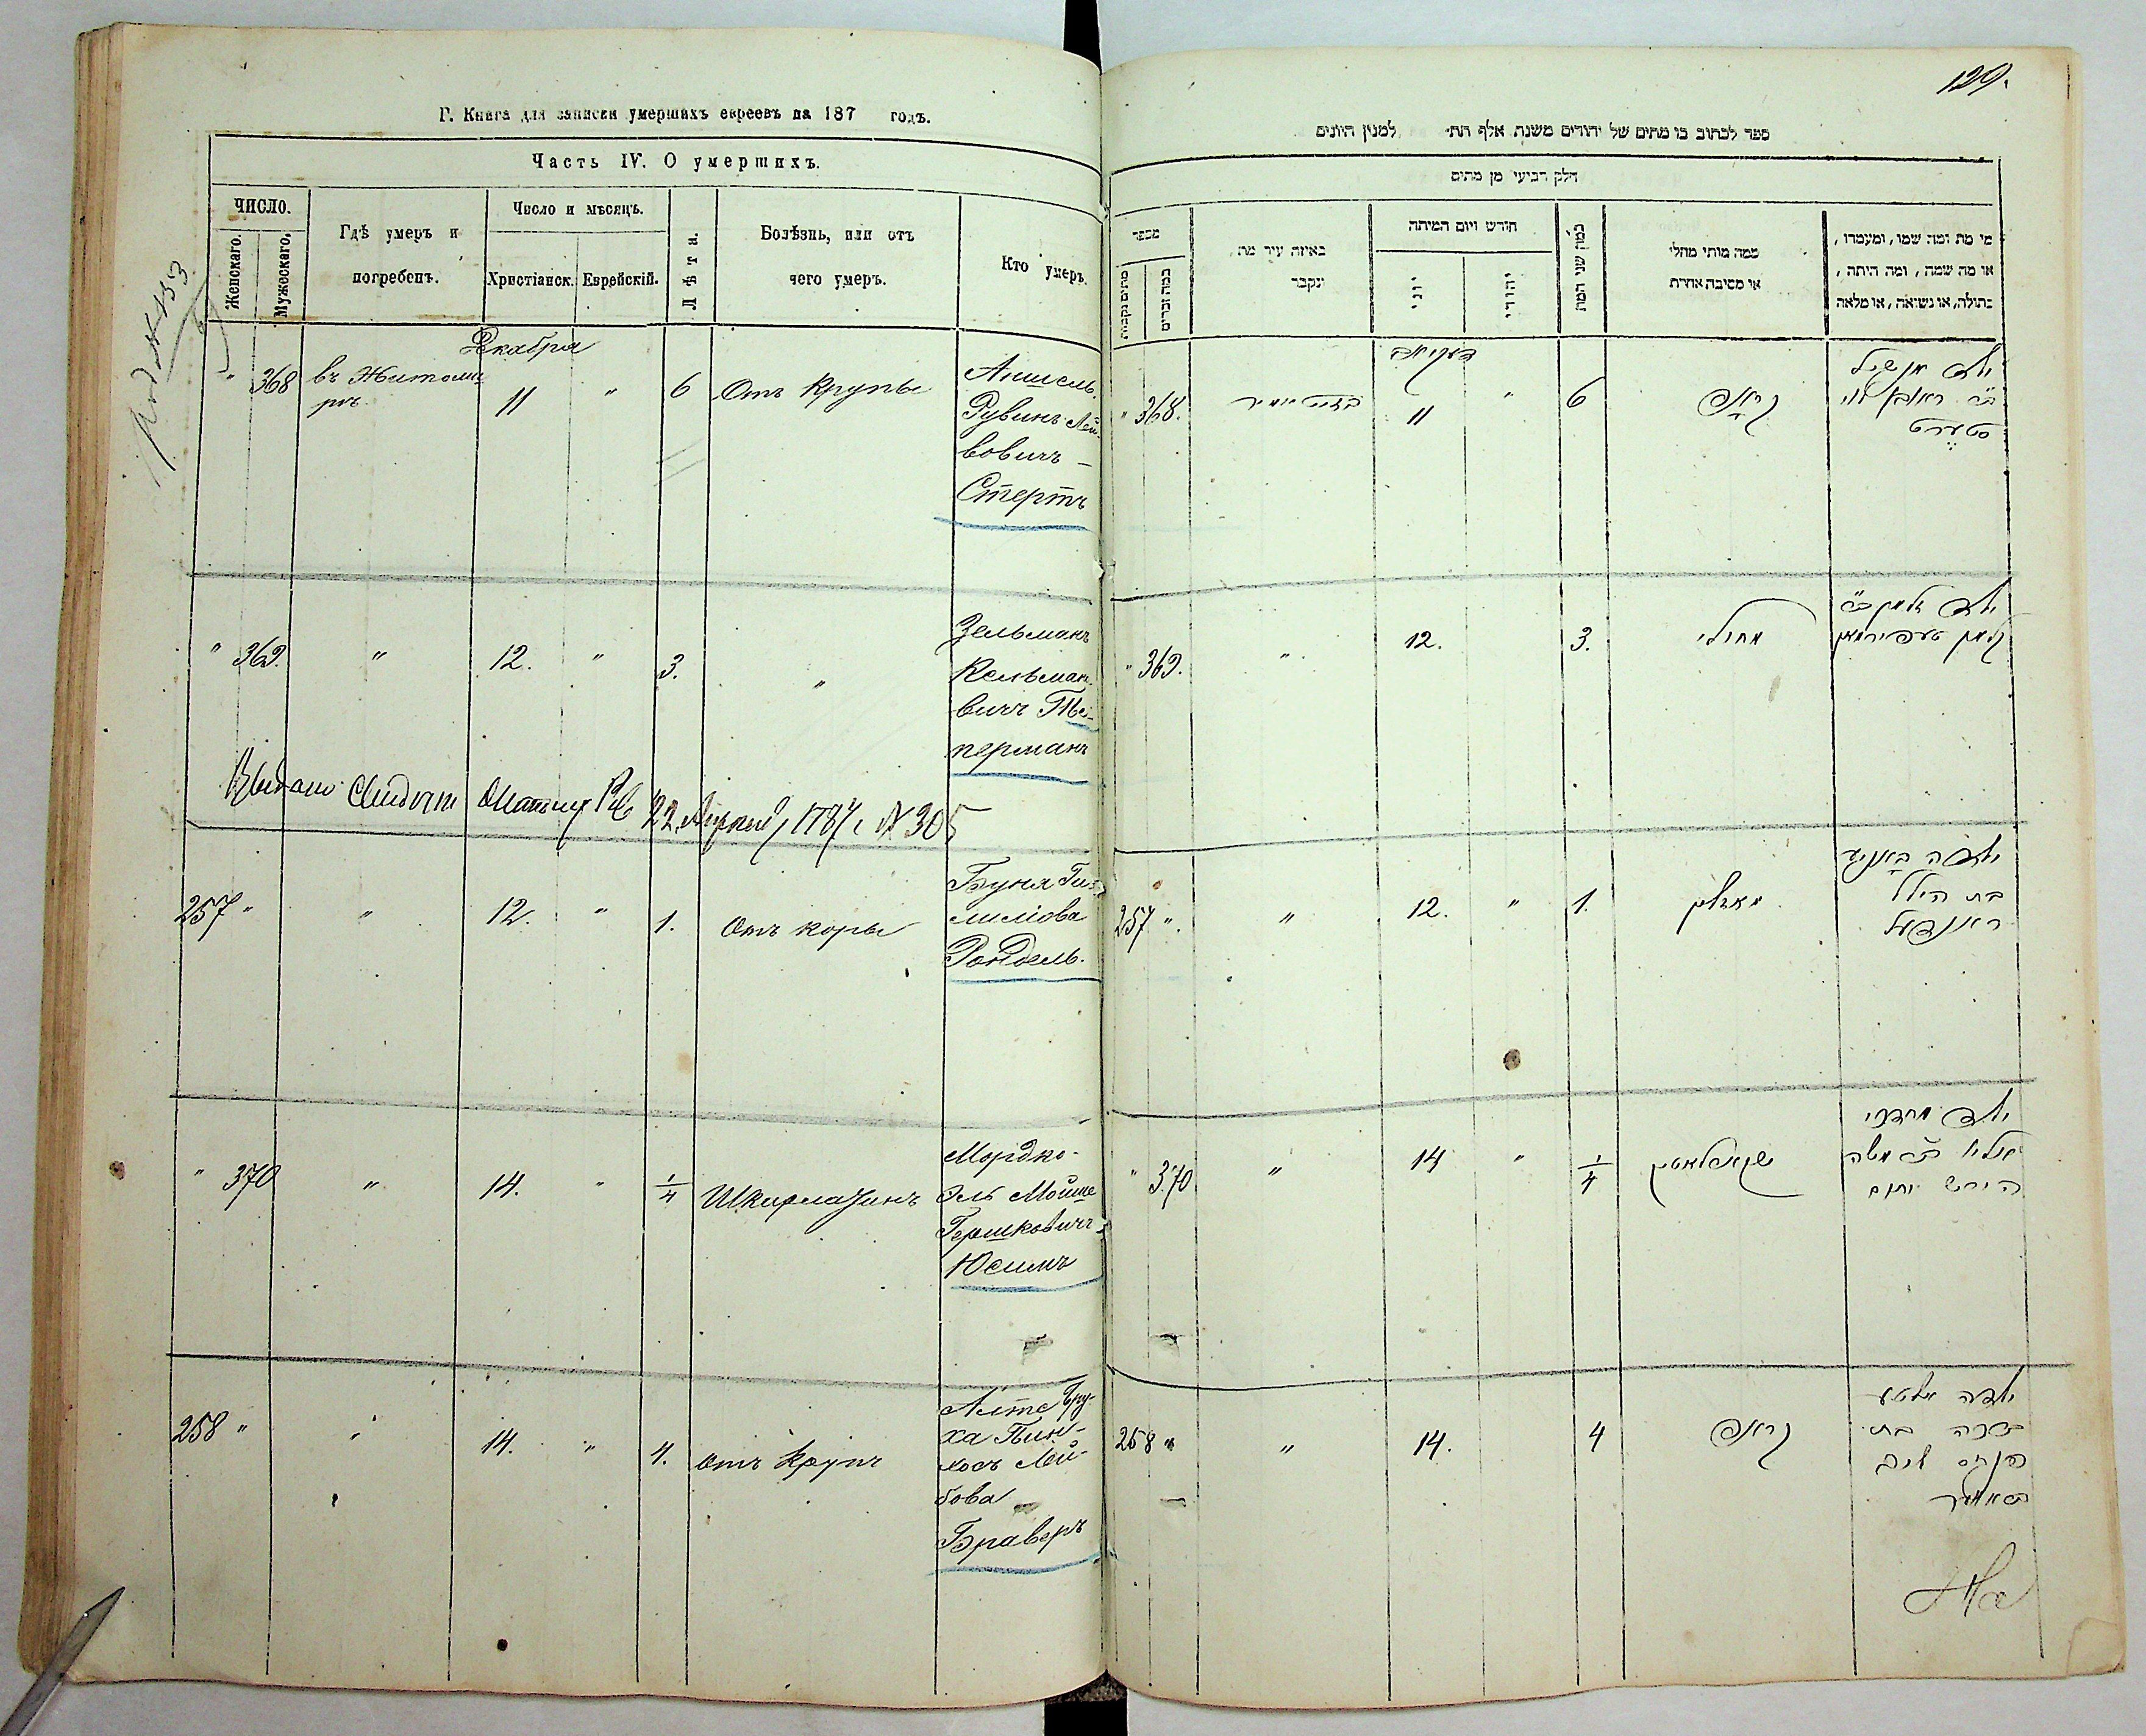 129.
Г. Книга для записки умершихъ евреевъ на 187 годъ.
Часть IV. О умершихъ.
ЧИСЛО.
Женскаго.
Мужескаго.
Гдѣ умеръ и
погребенъ.
Число и мѣсяцъ.
Христіанск.
Еврейскій.
Лѣта.
Болѣзнь, или отъ
чего умеръ.
Кто умеръ.
Декабря
" 368
въ Житоми
рѣ
11 " 6
Отъ Крупы
Аншель
Рувинъ Лей-
бовичъ
Стертъ
" 369. " 12. " 3. "
Зельманъ
Кельман.
вичъ Те-
перманъ
22 № 305
257 " " 12. " 1. Отъ коры
Буня Гил-
лиліова
Рондель.
" 370 " 14. " 1/4 Шкарлатинъ
Мордко-
Эль Мойше
Гершковичъ
Юсимъ
258 " " 14. " 4. отъ Крупъ
Алте Бру-
ха Пин-
хосъ Лей-
бова
Браверъ
ספר לכתוב בו מתים של יהודים משנת אלף תת׳ למנין היונים
חלק רביעי מן מתים
מספר
מתים נקבות
כמה זכרים
באיזה עיר מת
ונקבר
חודש ויום המיתה
יוני
יהודי
כמה שני המת
ממה מותו מחלי
או מסיבה אחרת
מי מת ומה שמו, ומעמדו,
או מה שמה, ומה היתה,
בתולה, או נשואה, או מלאה
" 368. בזיטאמיר
דעקאבר
11 " 6 קראפ
ילד אנשיל
ב״ר ראובן לוי
סטערט
" 369. " 12. 3. מחולי
ילד זלמן ב״ר
קלמן טעפירמאן
257 " " 12. " 1. מאזלין
ילדה באניע
בת הילל
ראנדעל
" 370 " 14 " 1/4 שקארלאטין
ילד מרדכי
ב״ר משה
הירש
258 " " 14. 4 קראפ
ילדה אלטע
ברכה בת
פנחס ליב
בראווער